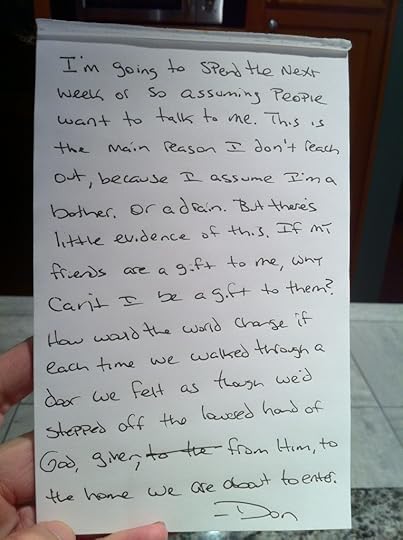 I'm going to spend the next
week or so assuming people
want to talk to me. This is
the main reason I don't reach
out, because I assume I'm a
bother. Or a drain. But there's
little evidence of this. If my
friends are a gift to me, why
can't I be a gift to them?
How would the world change if
each time we walked through a
door we felt as though we'd
stepped off the lowered hand of
God, given, to the from Him, to
the home we are about to enter.
-Don